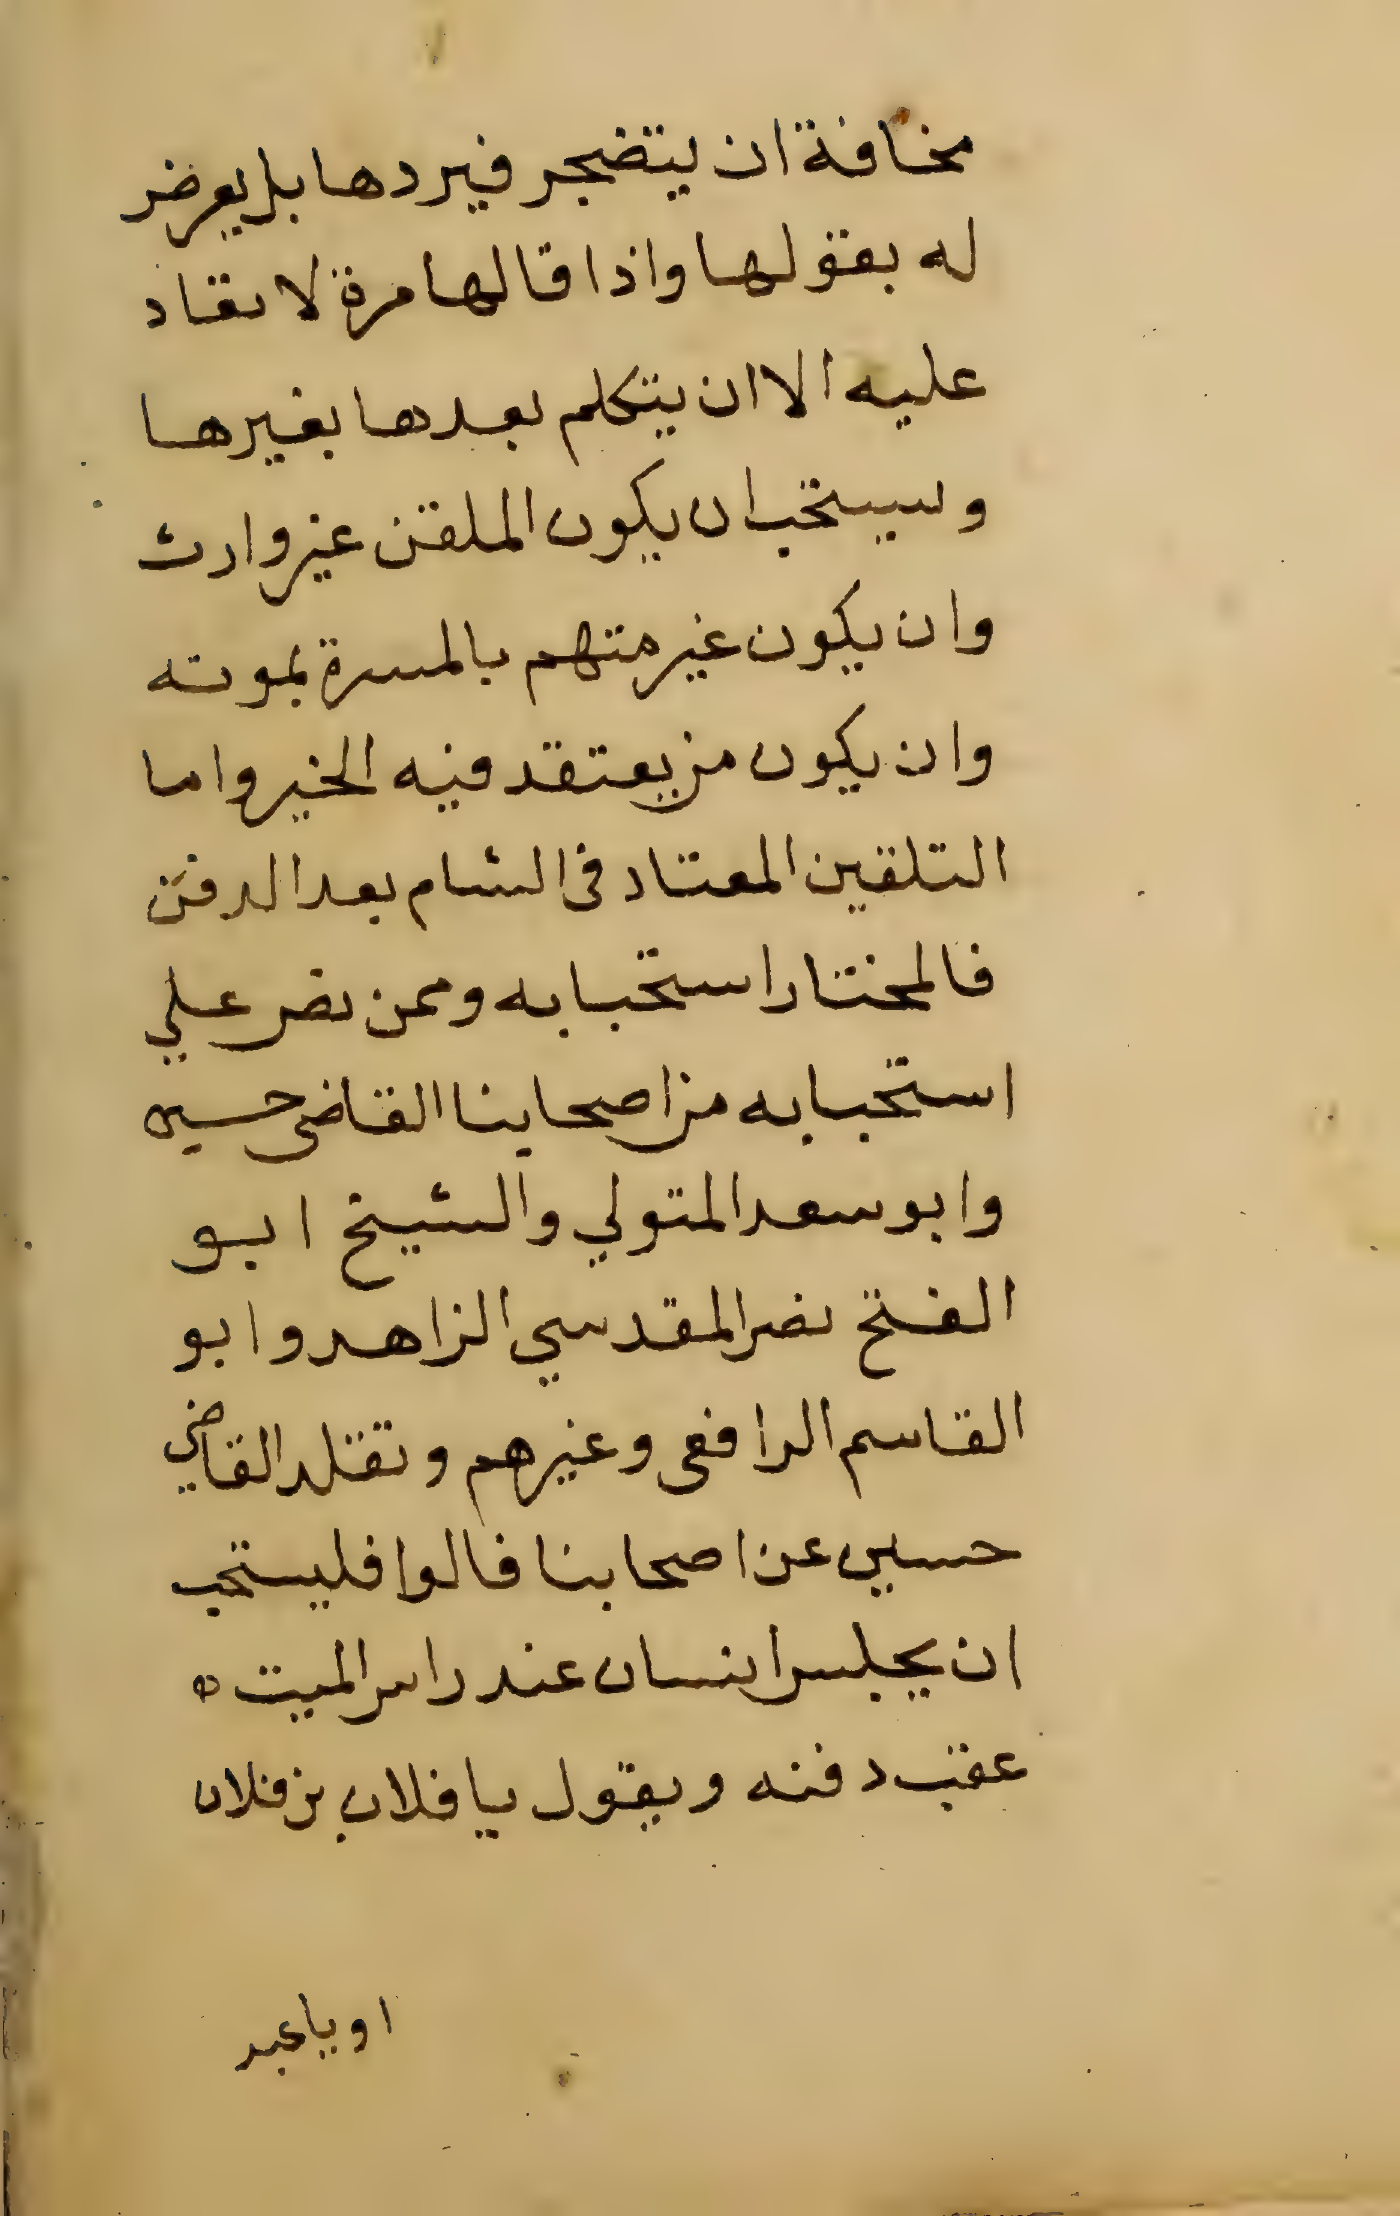 مخافة ان يتضجر فيردها بل يعرض
له بقولها واذا قالها مرة لا تعاد
عليه الا ان يتكلم بعدها بغيرها
ويستحب ان يكون الملقن غير وارث
وان يكون غير متهم بالمسرة بموته
وان يكون من يعتقد فيه الخير واما
التلقين المعتاد فى الشام بعد الدفن
فالمختار استحبابه وممن نص علي
استحبابه من اصحابنا القاضى حسين
وابو سعد المتولي والشيخ ابو
الفتح نصر المقدسي الزاهد وابو
القاسم الرافعى وغيرهم ونقله القاضي
حسين عن اصحابنا قالوا فليستحب
ان يجلس انسان عند راس الميت ه
عقب دفنه ويقول يا فلان بن فلان
او يا عبد